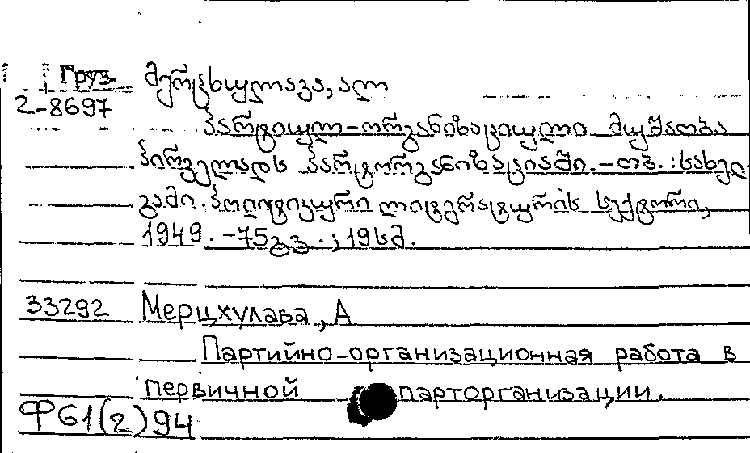 Груз. მერცხულავა, ალ
2-8697
პარტიულ-ორგანიზაციული მუშაობა
პირველად პარტორგანიზაციაში. - თბ. : სახელ
გამი. პოლიტიკური ლიტერატურის სექტორი,
1949. - 75გვ. ; 19სმ.
33292 Мерцхулава, А
Партийно-организационная работа в
первичной парторганизации.
Ф61(2)94